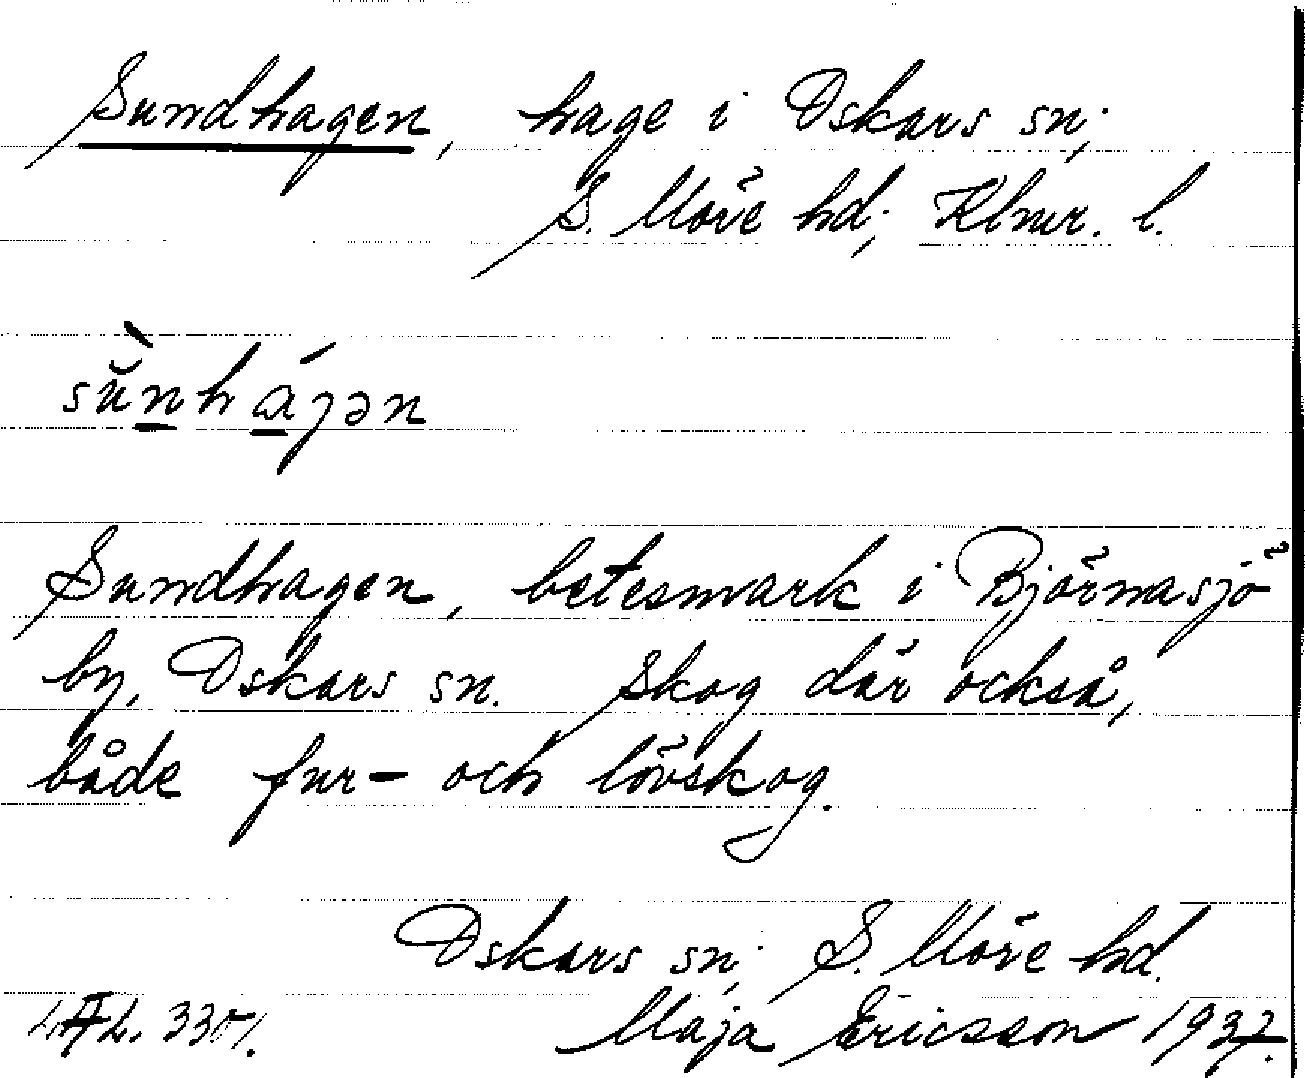 Sundhagen, hage i Oskars sn;
S. Möre hd; Klmr. l.
sŭ̀nhájən
Sundhagen, betesmark i Björnasjö
by, Oskars sn. Skog där också,
både fur- och lövskog.
Oskars sn; S. Möre hd.
Maja Ericsson 1937.